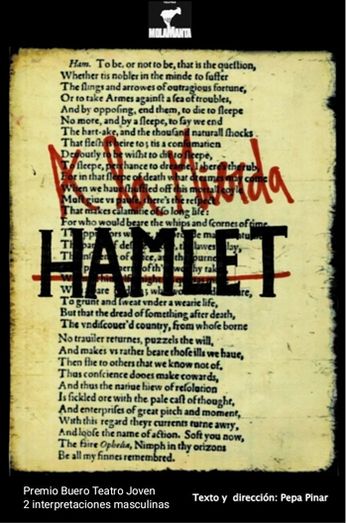 MOLAMANTA
Ham. To be, or not to be, that is the question,
Whether tis nobler in the minde to suffer
The slings and arrowes of outragious fortune,
Or to take Armes against a sea of troubles,
And by opposing, end them, to die to sleepe
No more, and by a sleepe, to say we end
The hart-ake, and the thousand naturall shocks
That flesh is heire to; tis a consumation
Deuoutly to be wisht to die to sleepe,
To sleepe, perchance to dreame, I there's the rub,
For in that sleepe of death what dreames may come
When we haue
Must giue vs pause, there's the respect
That makes calamitie of so long life:
For who would beare the whips and scornes of time,
A la Mierda
HAMLET
To grunt and sweat vnder a wearie life,
But that the dread of something after death,
The vndiscouer'd country, from whose borne
No trauiler returnes, puzzels the will,
And makes vs rather beare those ills we haue,
Then flie to others that we know not of.
Thus conscience dooes make cowards,
And thus the natiue hiew of resolution
Is sickled ore with the pale cast of thought,
And enterprises of great pitch and moment,
With this regard theyr currents turne awry,
And loose the name of action. Soft you now,
The faire Ophelia, Nimph in thy orizons
Be all my sinnes remembred.
Premio Buero Teatro Joven
2 interpretaciones masculinas
Texto y dirección: Pepa Pinar